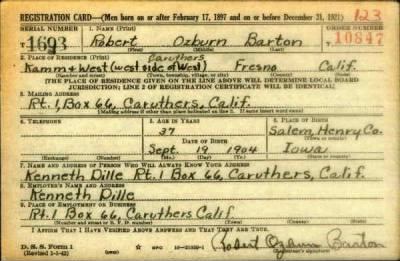 REGISTRATION CARD—(Men born on or after February 17, 1897 and on or before December 31, 1921) 123
SERIAL NUMBER 1. NAME (Print) ORDER NUMBER
T 1693 Robert Ozburn Barton 10847
(First) (Middle) (Last)
2. PLACE OF RESIDENCE (Print) Caruthers
Kamm + West (west side of West) Fresno Calif.
(Number and street) (Town, township, village, or city) (County) (State)
[THE PLACE OF RESIDENCE GIVEN ON THE LINE ABOVE WILL DETERMINE LOCAL BOARD
JURISDICTION; LINE 2 OF REGISTRATION CERTIFICATE WILL BE IDENTICAL]
3. MAILING ADDRESS
Rt. 1, Box 66, Caruthers, Calif.
[Mailing address if other than place indicated on line 2. If same insert word same]
4. TELEPHONE 5. AGE IN YEARS 6. PLACE OF BIRTH
37 Salem, Henry Co.
DATE OF BIRTH (Town or county)
Sept. 19 1904 Iowa
(Exchange) (Number) (Mo.) (Day) (Yr.) (State or country)
7. NAME AND ADDRESS OF PERSON WHO WILL ALWAYS KNOW YOUR ADDRESS
Kenneth Dille Rt. 1 Box 66, Caruthers, Calif.
8. EMPLOYER'S NAME AND ADDRESS
Kenneth Dille
9. PLACE OF EMPLOYMENT OR BUSINESS
Rt. 1 Box 66, Caruthers Calif.
(Number and street or R. F. D. number) (Town) (County) (State)
I AFFIRM THAT I HAVE VERIFIED ABOVE ANSWERS AND THAT THEY ARE TRUE.
D. S. S. Form 1
(Revised 1-1-42) (over) GPO Robert Ozburn Barton
(Registrant's signature)